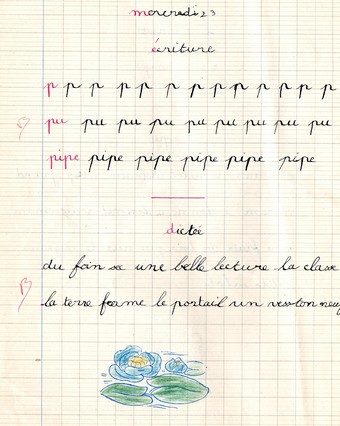 mercredi 23
écriture
p p p p p p p p p p p p p
pu pu pu pu pu pu pu pu pu
pipe pipe pipe pipe pipe pipe
dictée
B du foin une belle lecture la classe
la terre ferme le portail un veston neuf